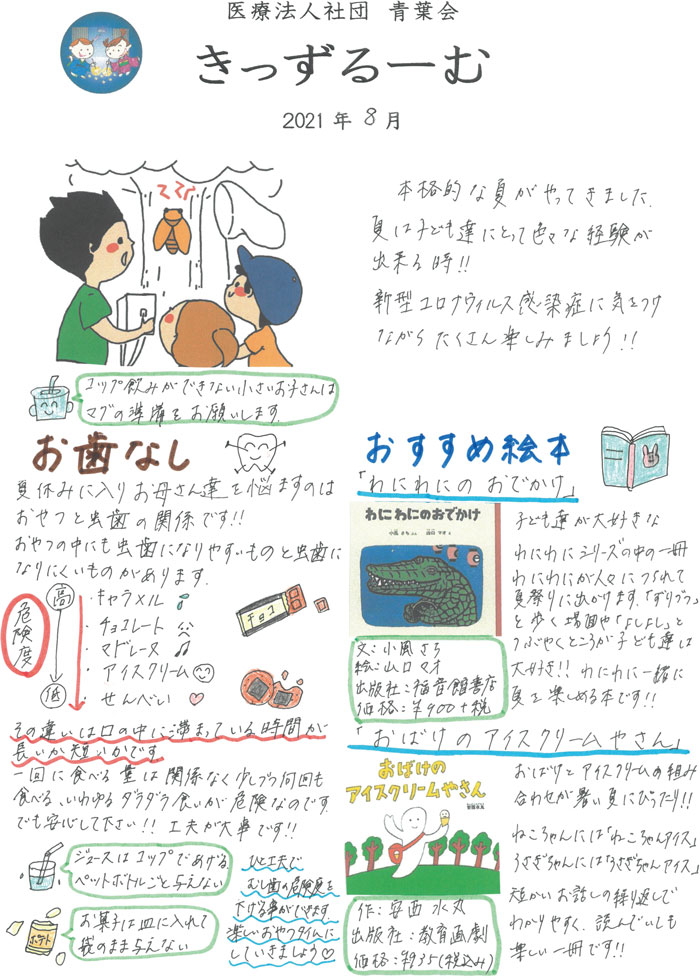 医療法人社団 青葉会
きっずるーむ
2021年 8月
本格的な夏がやってきました.
夏は子ども達にとって色々な経験が
出来る時!!
新型コロナウィルス感染症に気をつけ
ながら たくさん楽しみましょう!!
コップ飲みができない小さいお子さんは
マグの準備をお願いします.
お歯なし
夏休みに入りお母さん達を悩ますのは
おやつと虫歯の関係です!!
おやつの中にも虫歯になりやすいものと虫歯に
なりにくいものがあります.
危険度
高
低
・キャラメル
・チョコレート
・マドレーヌ
・アイスクリーム
・せんべい
チョコ
その違いは口の中に滞まっている時間が
長いか短いかです
一回に食べる量は関係なく少しづつ何回も
食べる、いわゆるダラダラ食いが危険なのです.
でも安心して下さい!! 工夫が大事です!!
ジュースはコップであげる
ペットボトルごと与えない
お菓子は皿に入れて
袋のまま与えない
ポテト
ひと工夫で
むし歯の危険度を
下げる事ができます.
楽しいおやつタイムに
していきましょう♡
おすすめ絵本
「わにわにの おでかけ」
わにわにのおでかけ
小風 さち ぶん 山口 マオ え
文:小風 さち
絵:山口マオ
出版社:福音館書店
価格:¥900+税
子ども達が大好きな
わにわにシリーズの中の一冊
わにわにが人々につられて
夏祭りに出かけます.「ずりづづ」
と歩く場面や「よしよし」と
つぶやくところが子ども達は
大好き!! わにわにと一緒に
夏を楽しめる本です!!
「おばけのアイスクリームやさん」
おばけの
アイスクリームやさん
安西水丸
作:安西 水丸
出版社:教育画劇
価格:¥935(税込み)
おばけとアイスクリームの組み
合わせが暑い夏にぴったり!!
ねこちゃんには「ねこちゃんアイス」
うさぎちゃんには「うさぎちゃんアイス」
短かいお話しの繰り返しで
わかりやすく、読んでいても
楽しい一冊です!!